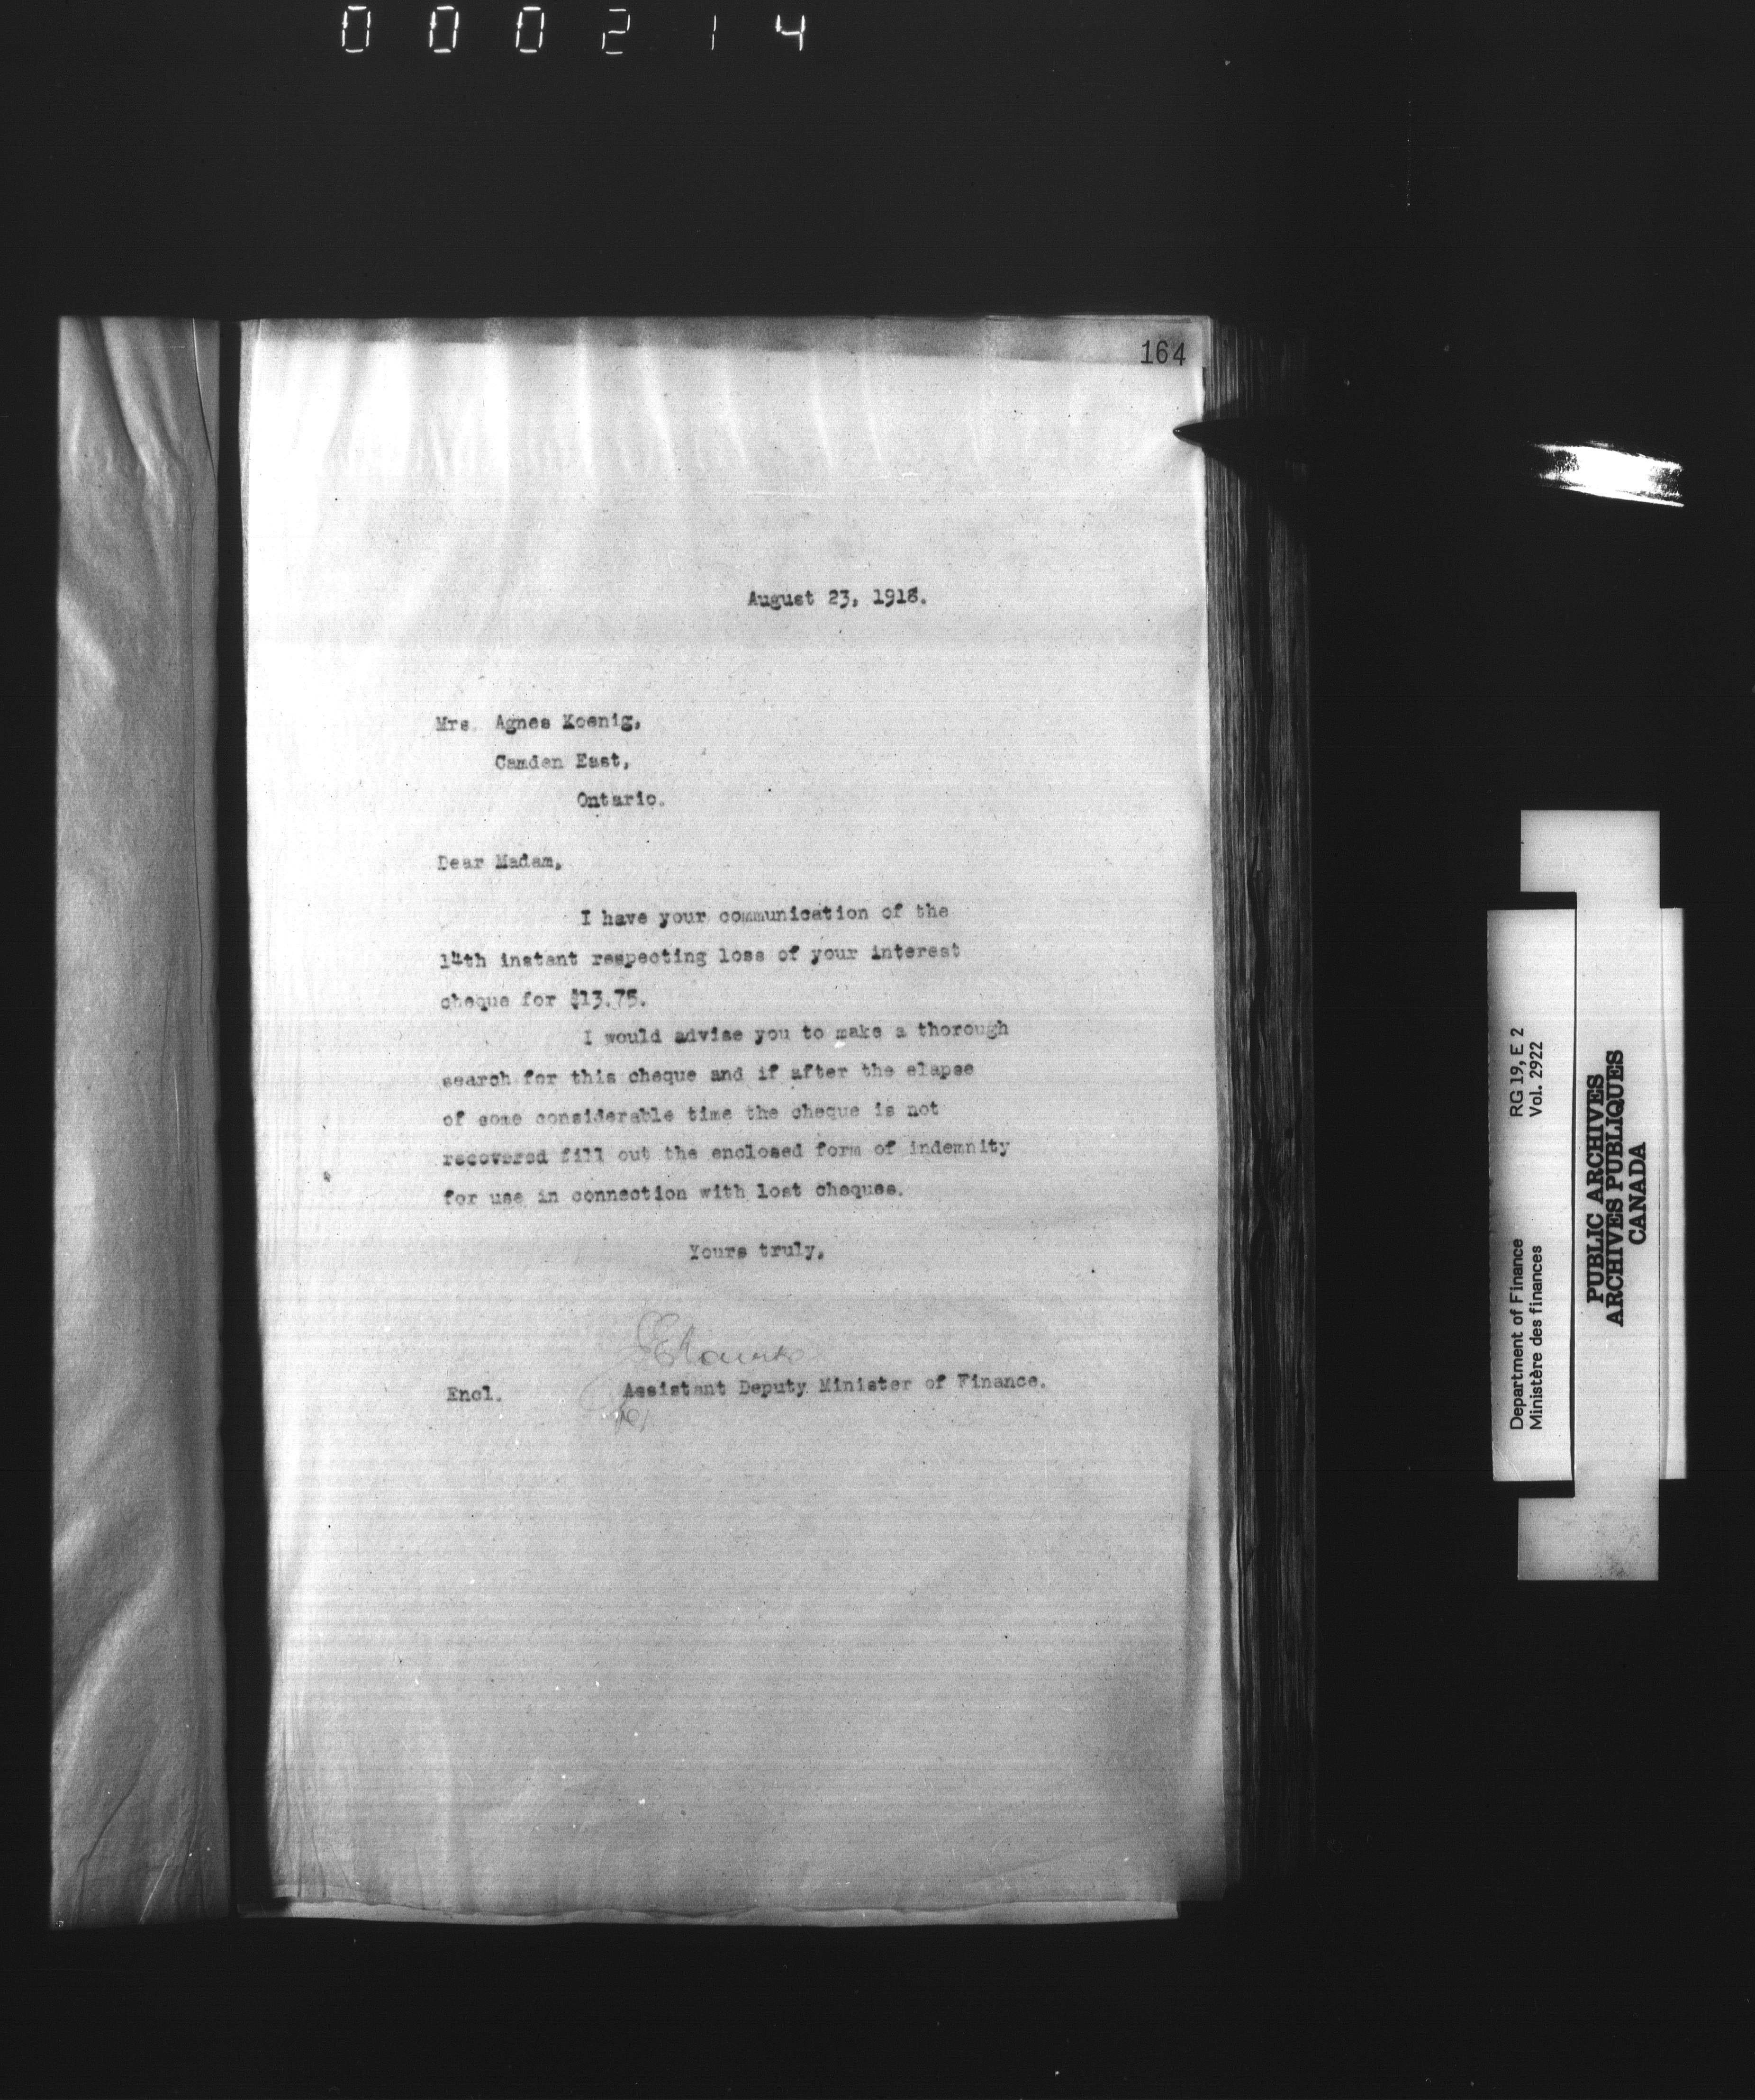 000214
164
August 23, 1918.
Mrs. Agnes Koenig,
Camden East,
Ontario.
Dear Madam,
I have your communication of the
14th instant respecting loss of your interest
cheque for $13.75.
I would advise you to make a thorough
search for this cheque and if after the elapse
of some considerable time the cheque is not
recovered fill out the enclosed form of indemnity
for use in connection with lost cheques.
Yours truly,
Assistant Deputy Minister of Finance.
Encl.
Department of Finance RG 19, E 2
Ministère des finances Vol. 2922
PUBLIC ARCHIVES
ARCHIVES PUBLIQUES
CANADA